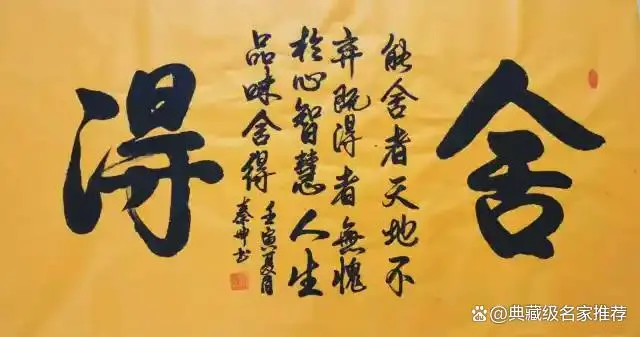 舍
能舍者天地不
弃既得者無愧
於心智慧人生
品味舍得
壬寅夏月
秦坤书
得
@典藏级名家推荐